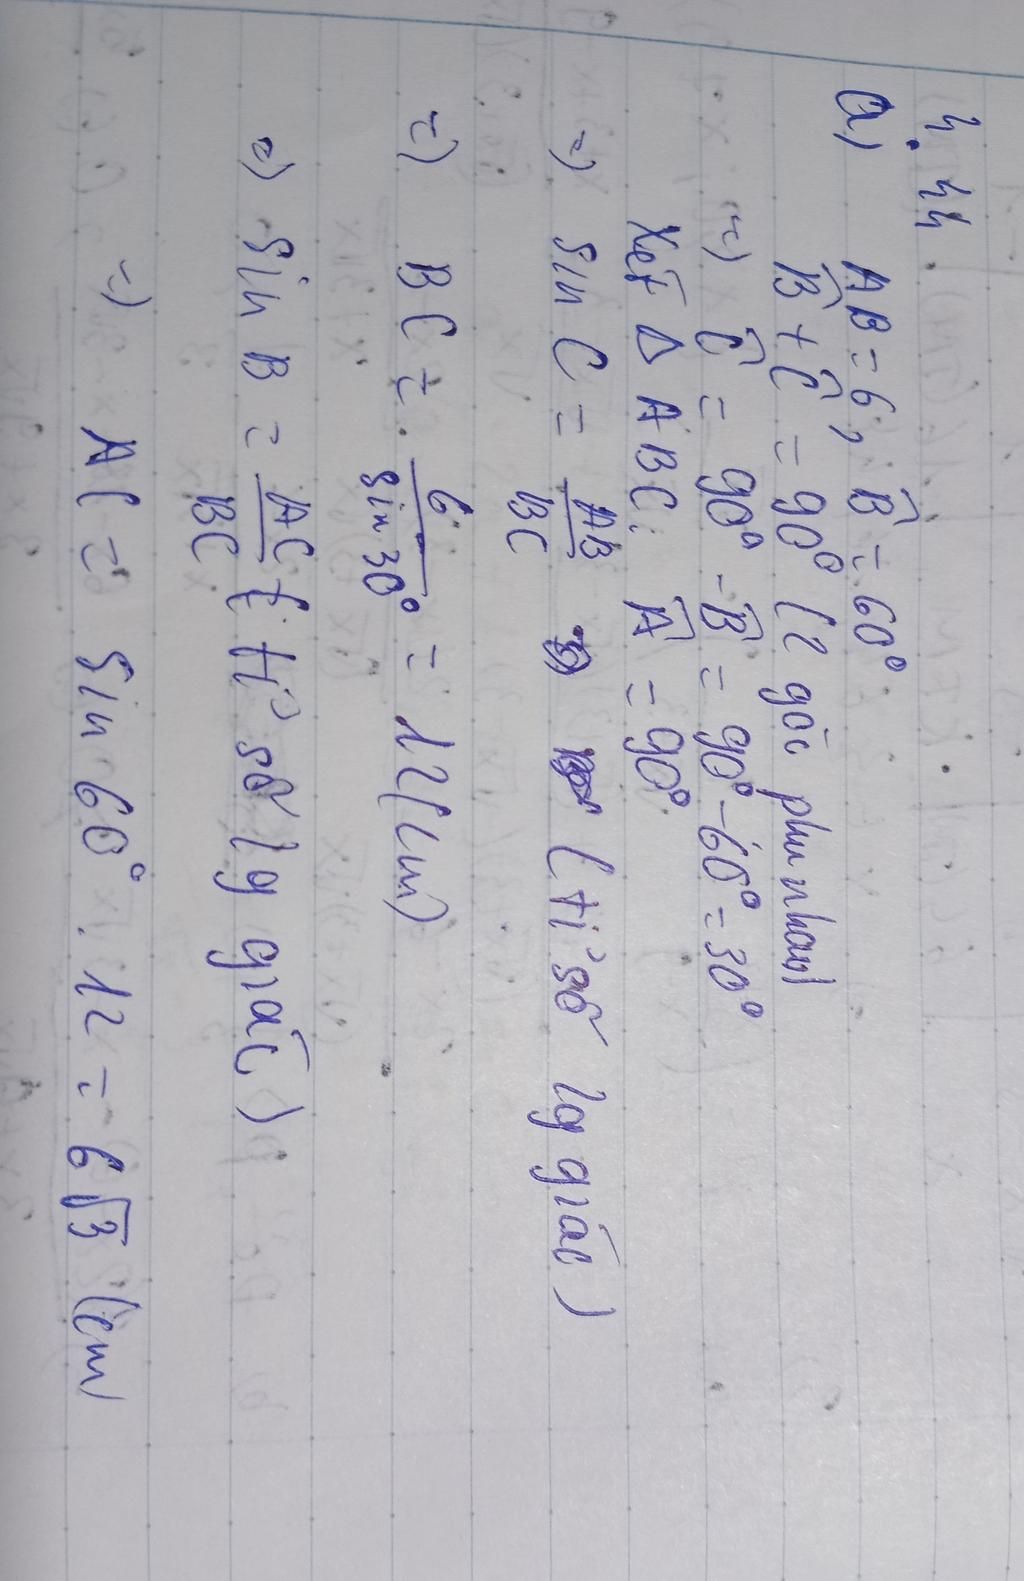 4.44
a) AB = 6, B̂ = 60°
B̂ + Ĉ = 90° (2 góc phụ nhau)
=) Ĉ = 90° - B̂ = 90° - 60° = 30°
Xét Δ ABC: Â = 90°
=) sin C = AB/BC (tỉ số lg giác)
=) BC = 6/sin 30° = 12 (cm)
=) sin B = AC/BC (tỉ số lg giác)
=) AC = sin 60° . 12 = 6√3 (cm)